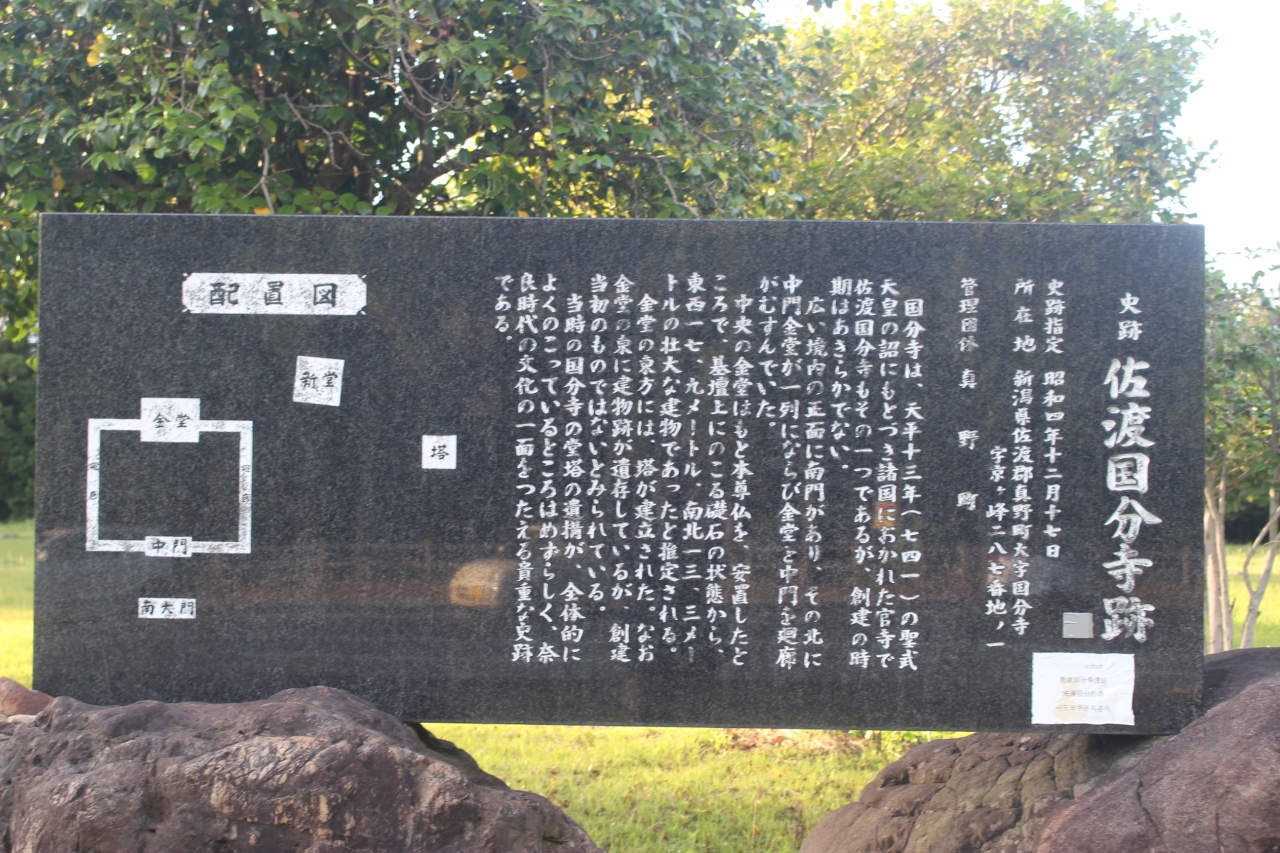 史跡 佐渡国分寺跡
史跡指定 昭和四年十二月十七日
所在地 新潟県佐渡郡真野町大字国分寺
字京ヶ峰二八七番地ノ一
管理団体 真野町
国分寺は、天平十三年(七四一)の聖武
天皇の詔にもとづき諸国におかれた官寺で
佐渡国分寺もその一つであるが、創建の時
期はあきらかでない。
広い境内の正面に南門があり、その北に
中門金堂が一列にならび金堂と中門を廻廊
がむすんでいた。
中央の金堂はもと本尊仏を、安置したと
ころで、基壇上にのこる礎石の状態から、
東西一七、九メートル、南北一三、三メー
トルの壮大な建物であったと推定される。
金堂の東方には、塔が建立された。なお
金堂の東に建物跡が遺存しているが、創建
当初のものではないとみられている。
当時の国分寺の堂塔の遺構が、全体的に
よくのこっているところはめずらしく、奈
良時代の文化の一面をつたえる貴重な史跡
である。
配置図
新堂
金堂
塔
中門
南大門